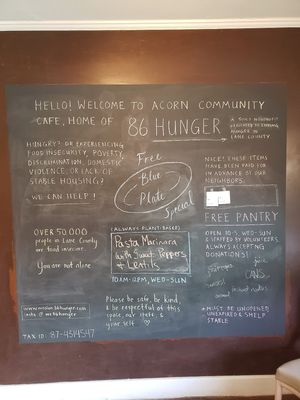 HELLO! WELCOME TO ACORN COMMUNITY
CAFE, HOME OF 86 HUNGER
A 501c3 NONPROFIT
DEDICATED TO ENDING
HUNGER IN
LANE COUNTY
HUNGRY? OR EXPERIENCING
FOOD INSECURITY, POVERTY,
DISCRIMINATION, DOMESTIC
VIOLENCE, OR LACK OF
STABLE HOUSING?
WE CAN HELP!
Free
Blue
Plate
Special
NICE! THESE ITEMS
HAVE BEEN PAID FOR
IN ADVANCE BY OUR
NEIGHBORS.
OVER 50,000
people in Lane County
are food insecure.
You are not alone.
(ALWAYS PLANT-BASED)
Pasta Marinara
with Sweet Peppers
+ Lentils
10AM-2PM, WED-SUN
Please be safe, be kind,
& be respectful of this
space, our staff, &
your self
FREE PANTRY
OPEN 10-5, WED-SUN
& STAFFED BY VOLUNTEERS
ALWAYS ACCEPTING
DONATIONS!
juice
CANS
*MUST BE UNOPENED
UNEXPIRED & SHELF
STABLE
TAX ID: 87-4514547